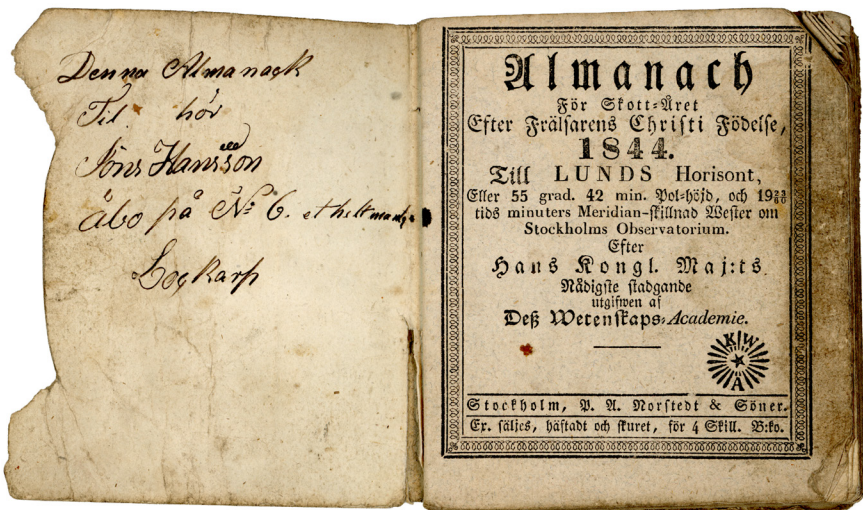 Denna Almanack
Til hör
Jöns Hansson
åbo på No 6. et helt
Lockarp
Almanach
För Skott-Året
Efter Frälsarens Christi Födelse,
1844.
Till LUNDS Horisont,
Eller 55 grad. 42 min. Pol-höjd, och 19 23/60
tids minuters Meridian-skillnad Wester om
Stockholms Observatorium.
Efter
Hans Kongl. Maj:ts
Nådigste stadgande
utgifwen af
Deß Wetenskaps-Academie.
K W A
Stockholm, P. A. Norstedt & Söner.
Ex. säljes, häftadt och skuret, för 4 Skill. B:ko.